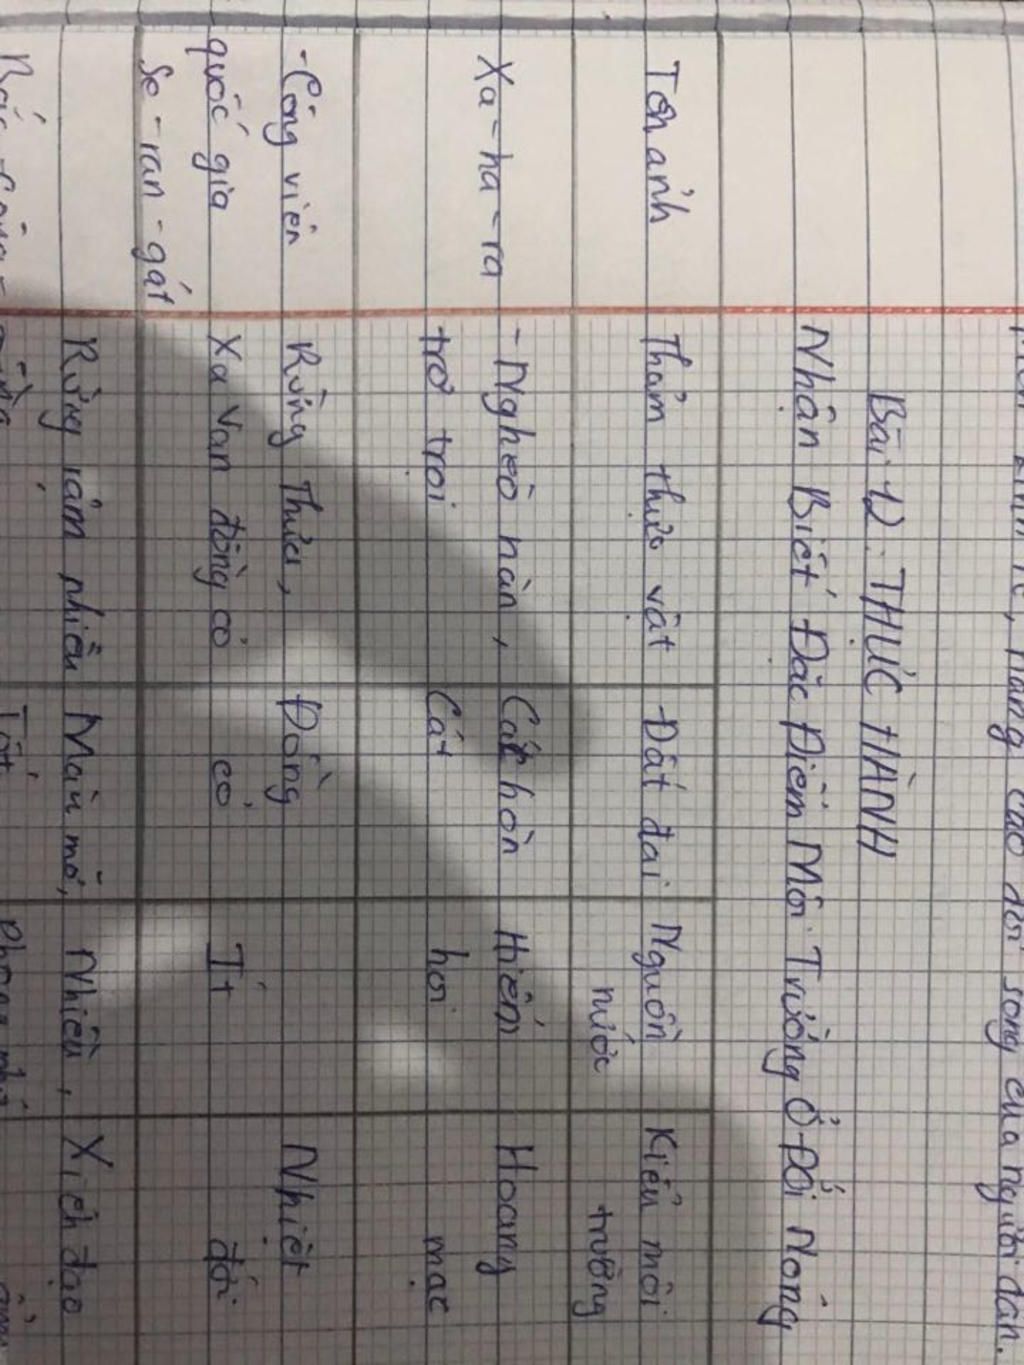 cao đời song của người dân.
Bài 12: THỰC HÀNH
Nhận Biết Đặc Điểm Môi Trường Ở Đới Nóng
Tên ảnh Thảm thực vật Đất đai Nguồn Kiểu môi
nước trường
Xa-ha-ra - Nghèo nàn, Các hòn Hiếm Hoang
trơ trọi Cát hoi mạc
- Công viên Rừng Thưa, Đồng Nhiệt
quốc gia Xa van đồng cỏ cỏ Ít đới
Se-ran-gát
Rừng rậm nhiều Màu mỡ, Nhiều, Xích đạo